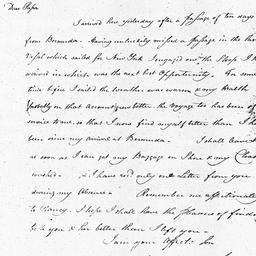 Dear Papa
I arrived here yesterday after a passage of ten days
from Bermuda. Having unluckily missed a passage in the
Vessel which sailed for New York I engaged one the Sloop I
arrived in which was the next best Opportunity. For some
time before I sailed the weather was warm & my Health
probably on that account grew better the voyage too has been of
service to me, so that I now find myself better than I h
been since my arrival at Bermuda. I shall
as soon as I can get my Baggage on Shore & my
washed. I have recd only one Letter from you
during my Absence. Remember me affectionately
to Nancy. I hope I shall have the pleasure of find
you & her better than I left you
I am your Affect. Son